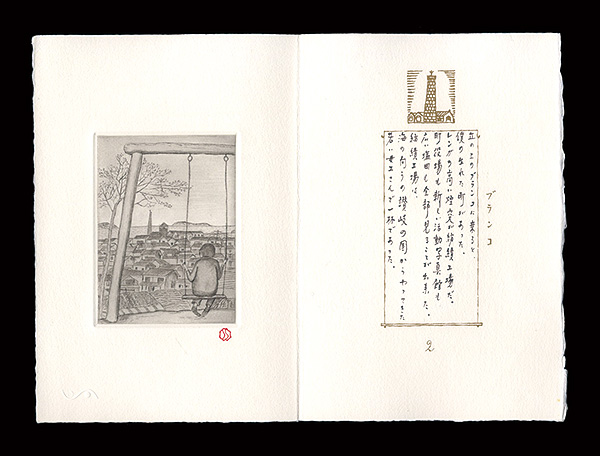 ブランコ
丘の上のブランコに乗ると
僕の生れた町があった。
レンガの高い煙突が紡績工場だ。
町役場も新しい活動写真館も
広い塩田も全部見ることが出来た。
紡績工場は、
海の向うの讃岐の国からやってきた
若い女工さんで一杯であった。
2